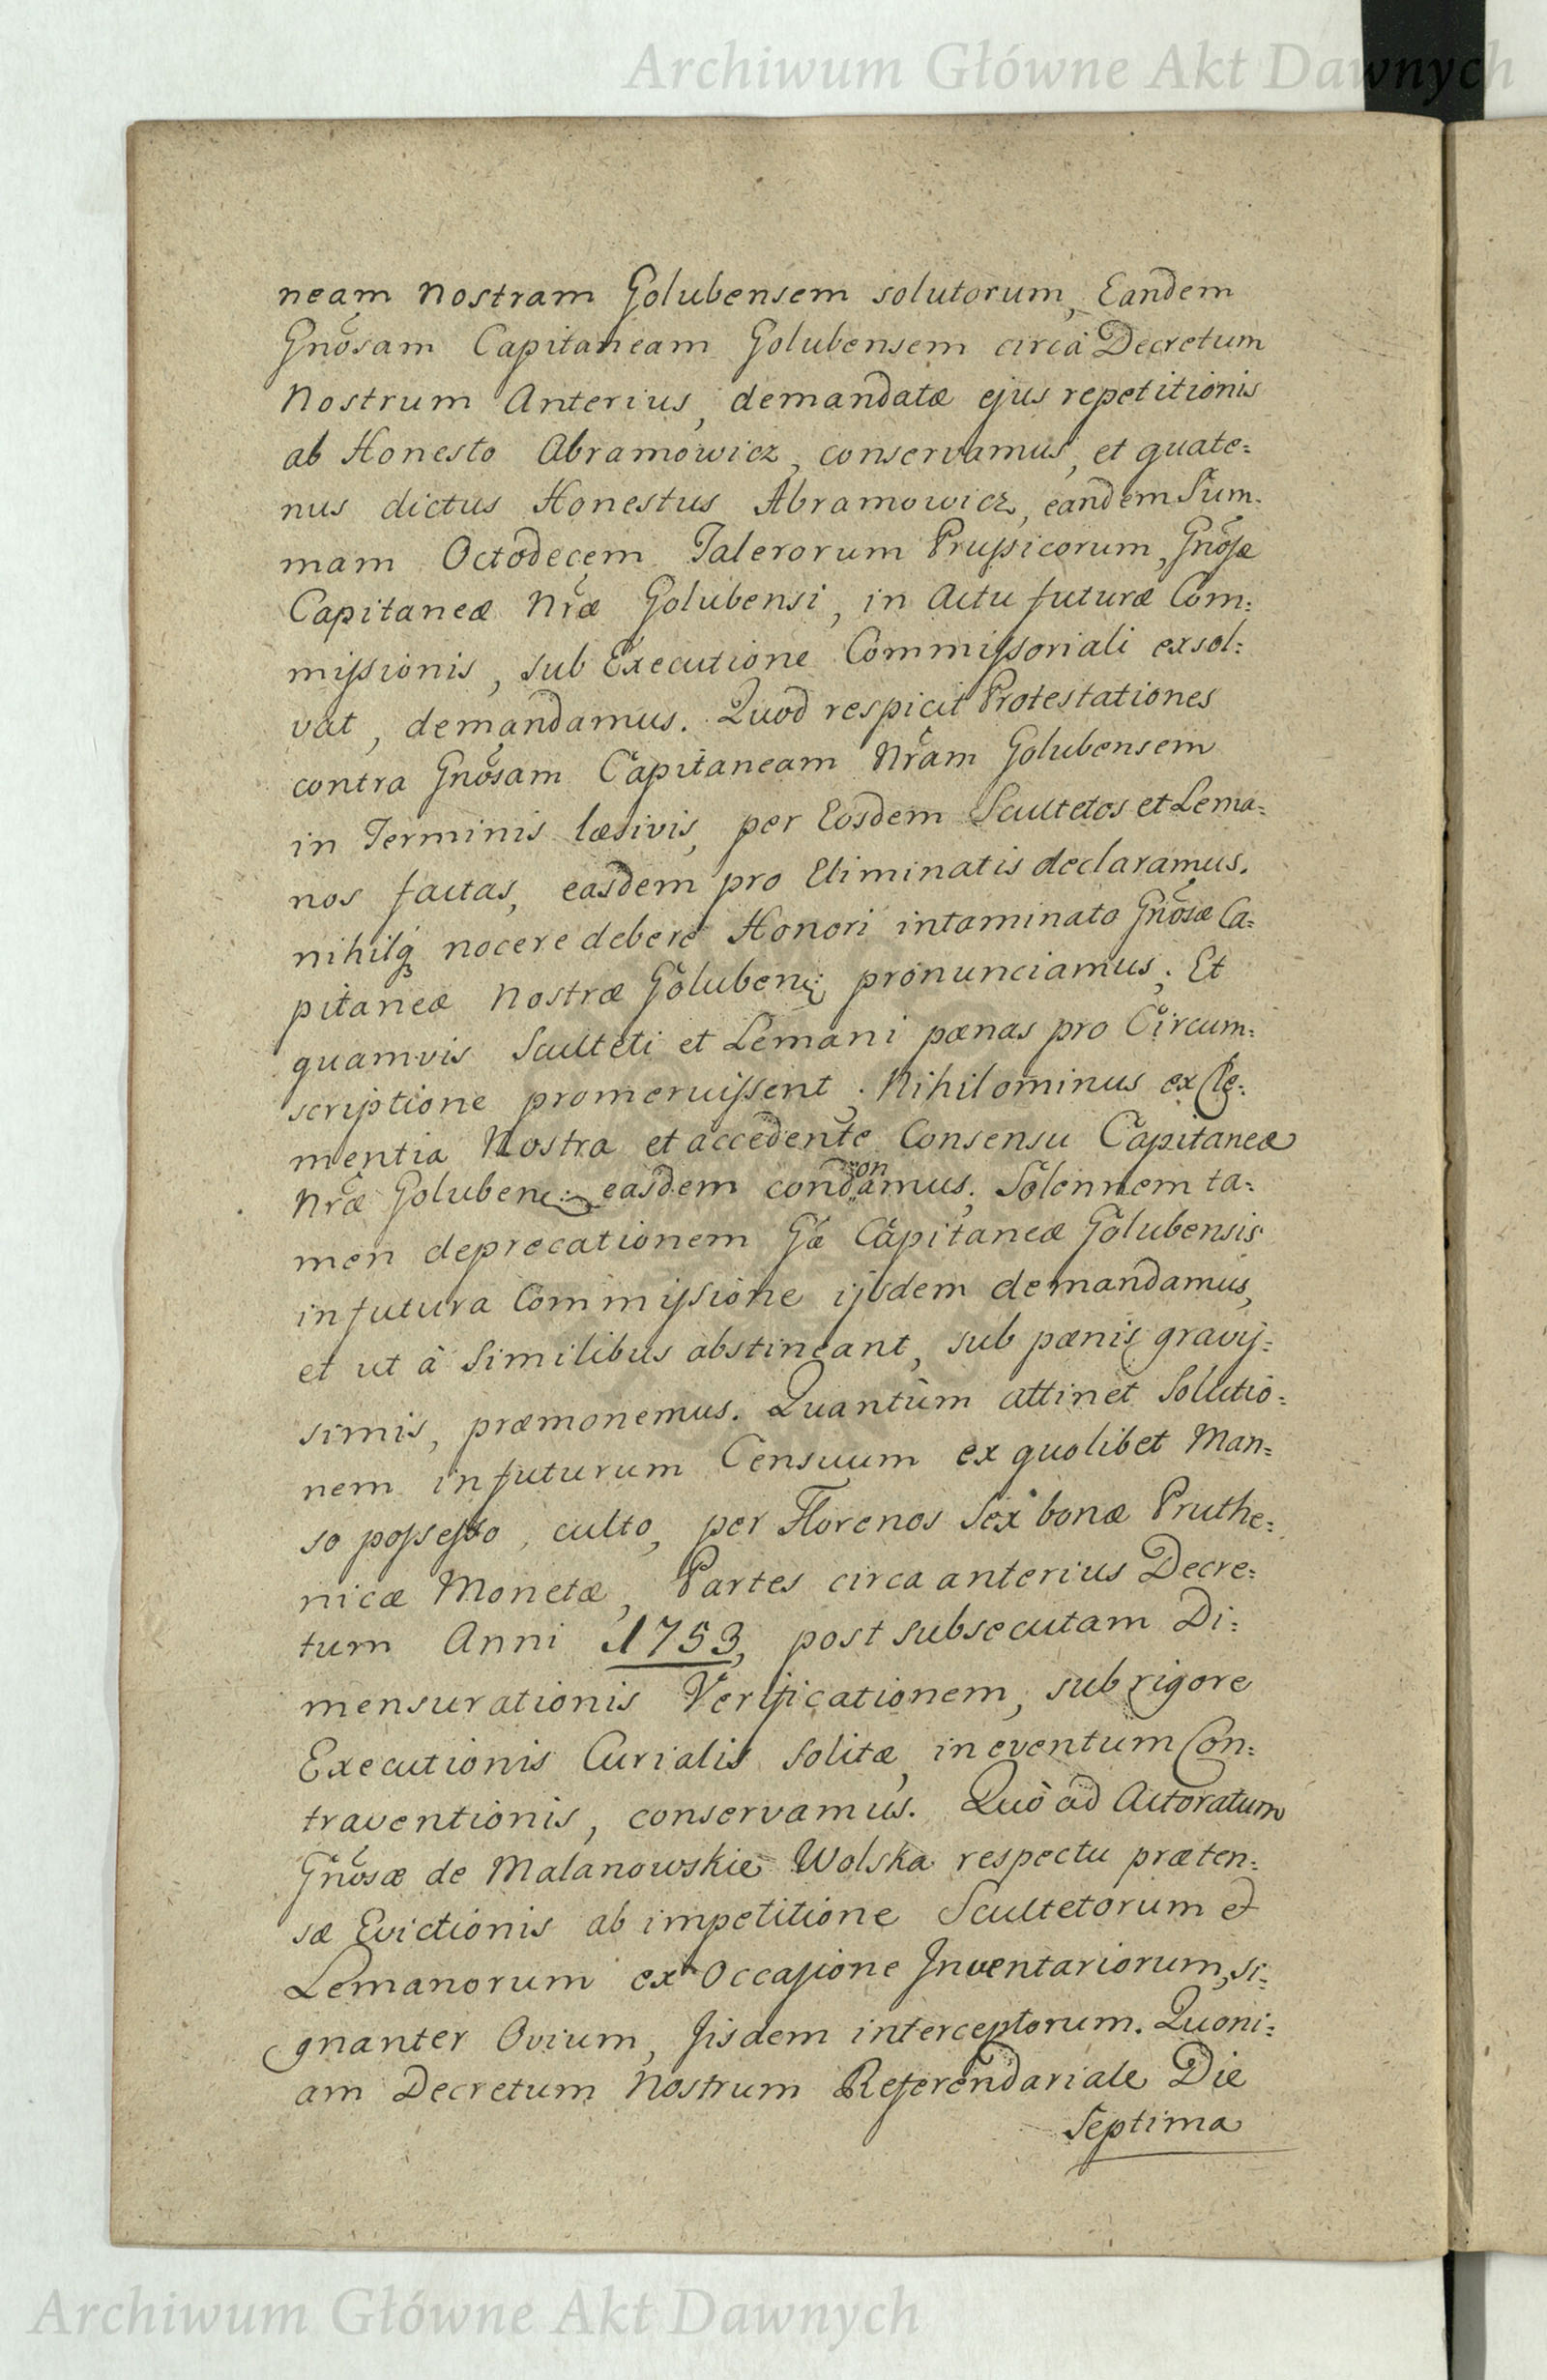 Archiwum Główne Akt Dawnych
neam nostram Golubensem solutorum, Eandem
Gnosam Capitaneam Golubensem circa Decretum
Nostrum Anterius, demandatæ ejus repetitionis
ab Honesto Abramowicz, conservamus, et quate=
nus dictus Honestus Abramowicz, eandem Sum=
mam Octodecem Talerorum Prussicorum, Gnosæ
Capitaneæ Nræ Golubensi, in Actu futuræ Com=
missionis, sub Executione Commissoriali exsol=
vat, demandamus. Quod respicit Protestationes
contra Gnosam Capitaneam Nram Golubensem
in Terminis læsivis, per Eosdem Scultetos et Lema=
nos factas, easdem pro Eliminatis declaramus.
nihilq nocere debere Honori intaminato Gnosæ Ca=
pitaneæ Nostræ Goluben: pronunciamus. Et
quamvis Sculteti et Lemani pænas pro Circum=
scriptione promeruissent. Nihilominus ex Cle=
mentia Nostra et accedente Consensu Capitaneæ
Nræ Goluben: easdem condonamus. Solennem ta=
men deprecationem Gæ Capitaneæ Golubensis
in futura Commissione ijsdem demandamus,
et ut à Similibus abstineant, sub pænis gravis=
simis, præmonemus. Quantùm attinet Solutio=
nem in futurum Censuum ex quolibet Man=
so possesso, culto, per Florenos Sex bonæ Pruthe=
nicæ Monetæ, Partes circa anterius Decre=
tum Anni 1753, post subsecutam Di=
mensurationis Verificationem, sub rigore
Executionis Curialis Solitæ, in eventum Con=
traventionis, conservamus. Quò ad Actoratum
Gnosæ de Malanowskie Wolska respectu præten=
sæ Evictionis ab impetitione Scultetorum et
Lemanorum ex Occasione Inventariorum, si=
gnanter Ovium, Iisdem interceptorum. Quoni=
am Decretum Nostrum Referendariale Die
Septima
Archiwum Główne Akt Dawnych